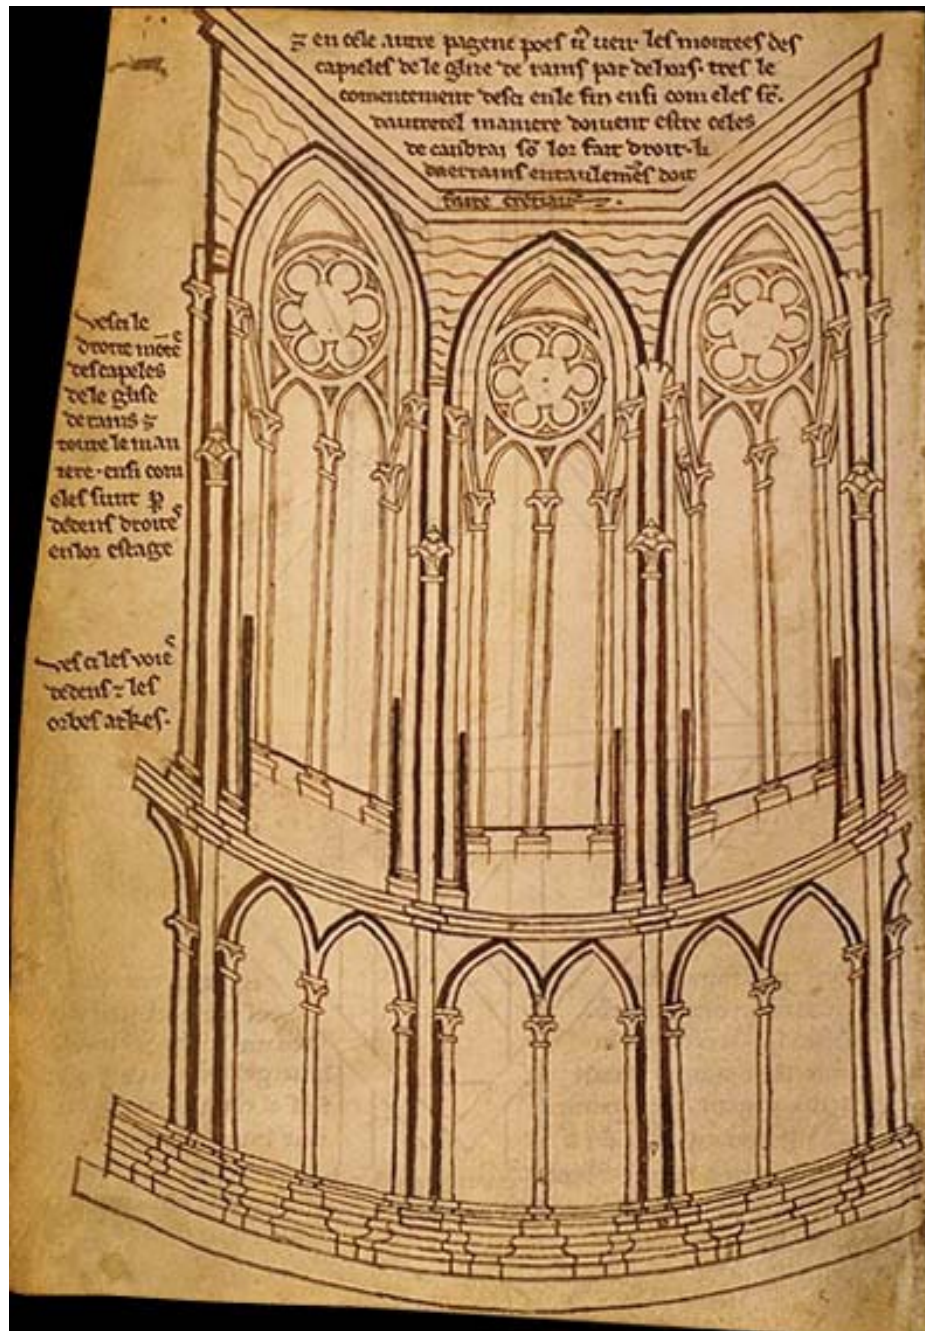 ⁊ en cele autre pagene poes uͦ veir les montees des
capieles de le glize de rains par dehors. tres le
comencement desci en le fin ensi com eles st̄.
dautretel maniere doivent estre celes
de canbrai sō lor fait droit. li
daerrains entaulemēs doit
faire cretiaus
vesci le
droite mōteͤ
des capeles
de le glise
de rains ⁊
toute le man
iere. ensi com
eles sunt ꝑ
dedens droiteͤ
en lor estage
ves ci les voieͤ
dedens ⁊ les
orbes arkes.